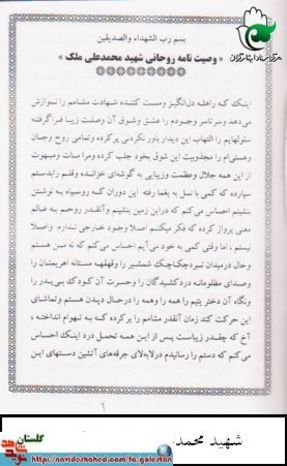 بسم رب الشهداء والصدیقین
« وصیت نامه روحانی شهید محمدعلی ملک »
اینک که راهله دل‌انگیز ومست کننده شهادت مشامم را نوازش
می‌دهد وسرتاسر وجودم را عشق وشوق آن وصلت زیبا فراگرفته
سلولهایم را التهاب این دیدار باور نکردنی پرکرده وتمامی روح وجان
وهستی‌ام را مجذوبیت این شوق بخود جلب کرده ومرا مات ومبهوت
از این همه جلال وعظمت وزیبایی به گوشه‌ای خزانده وقلم رابدستم
سپارده که کمی با نسل به یغما رفته این دوران که روسیاه به نوشتن
ننشینم احساس می‌کنم که دراین زمین بنشینم وآنقدر روحم به عالم
معنی پرواز کرده که فکر میکنم اصلا وجود خارجی ندارم واصلا
نیستم ، اما وقتی کمی به خود می‌آیم احساس می‌کنم که نه من هستم
وحال درمیدان نبردچکاچک شمشیر را وقهقهه مستانه اهریمنان را
وصدای مظلومانه دردکشیدگان را وحسرت آن کودک بی‌پدر را
ونگاه آن دختر یتیم را همه را وهمه را درحال دیدن هستم وتماشای
این حرکت کند زمان آنقدر مشامم را پرکرده که به تهوام انداخته ،
آخ که چقدر زیباست پس از این همه تحمل درد اینک احساس
می‌کنم که دستم را رسانیدم درلابه‌لای جرقه‌های آتشین دستهای این
۲
شهید محمد
گلستان
نوید شاهد
https://navideshahed.com/fa/golestan